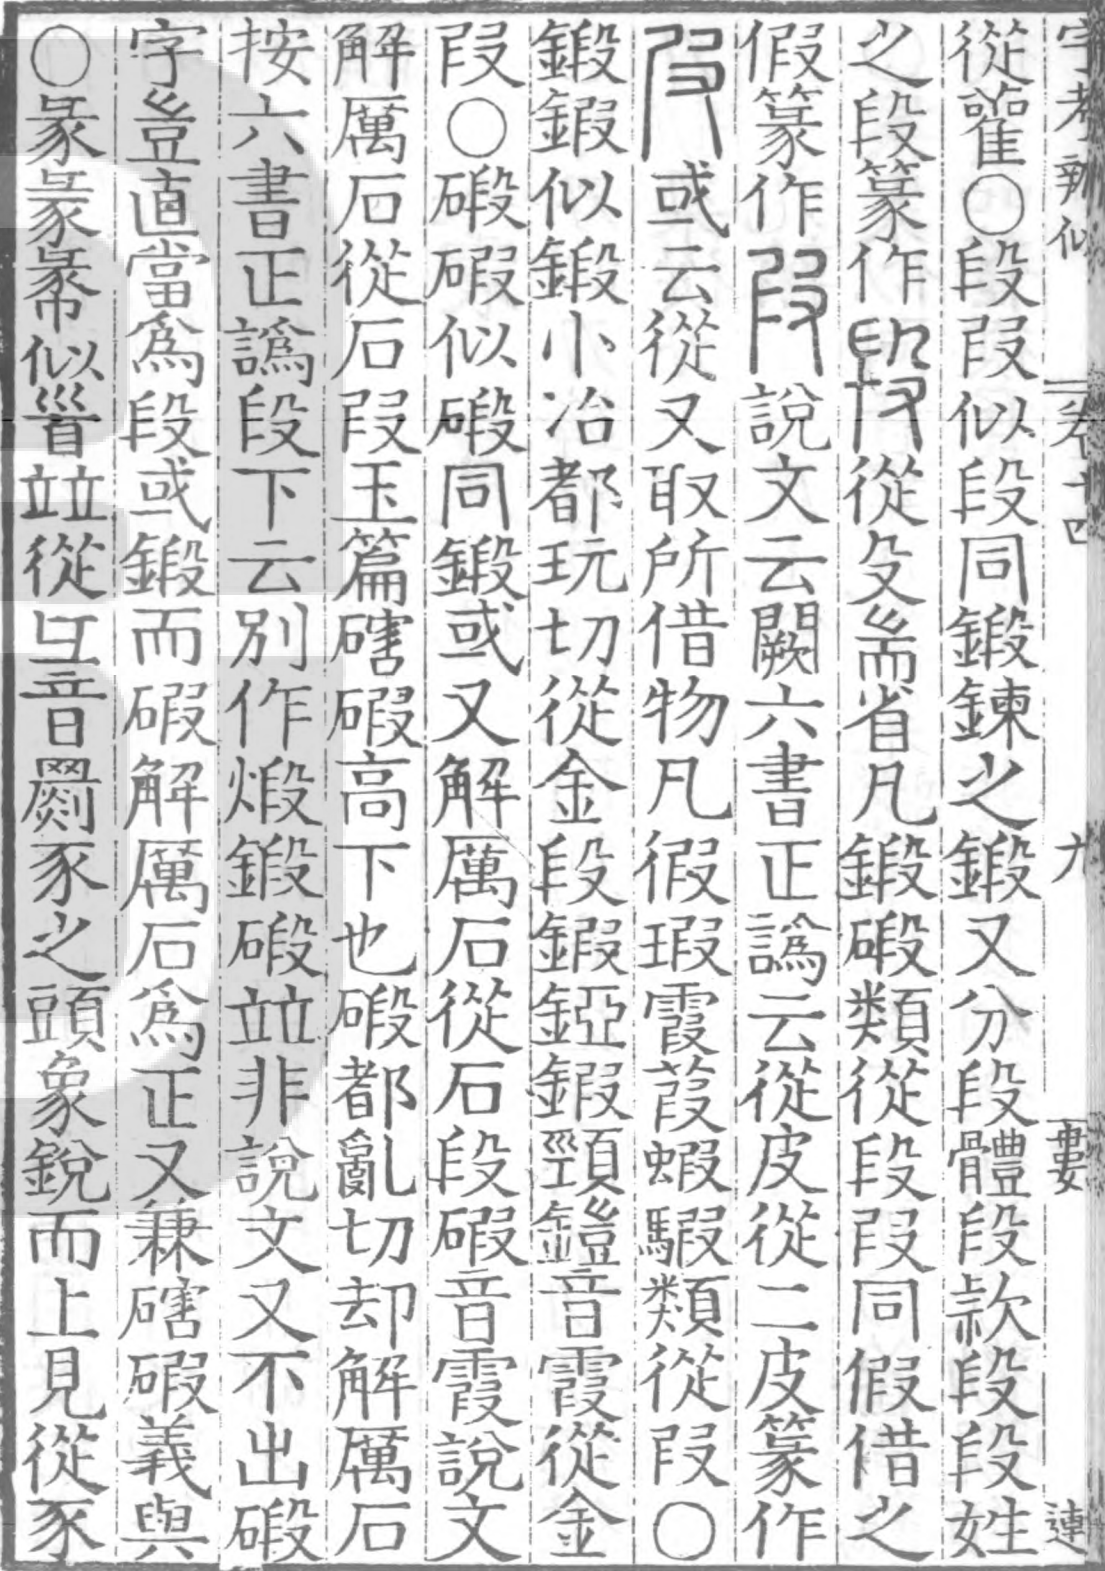 字考辨似 卷十四 九 婁 連
從雚○段叚似段同鍛鍊之鍛又分段體段款段段姓
之段篆作從殳耑省凡鍛碫類從段叚同假借之
假篆作說文云闕六書正譌云從皮從二皮篆作
或云從又取所借物凡假瑕霞葭蝦騢類從叚○
鍛鍜似鍛小冶都玩切從金段鍜錏鍜頸鎧音霞從金
叚○碫碬似碫同鍛或又解厲石從石段碬音霞說文
解厲石從石叚玉篇磍碬高下也碫都亂切却解厲石
按六書正譌段下云別作煅鍛碫竝非說文又不出碫
字豈直當爲段或鍛而碬解厲石爲正又兼磍碬義與
○彖似竝從彑音罽豕之頭象銳而上見從豕